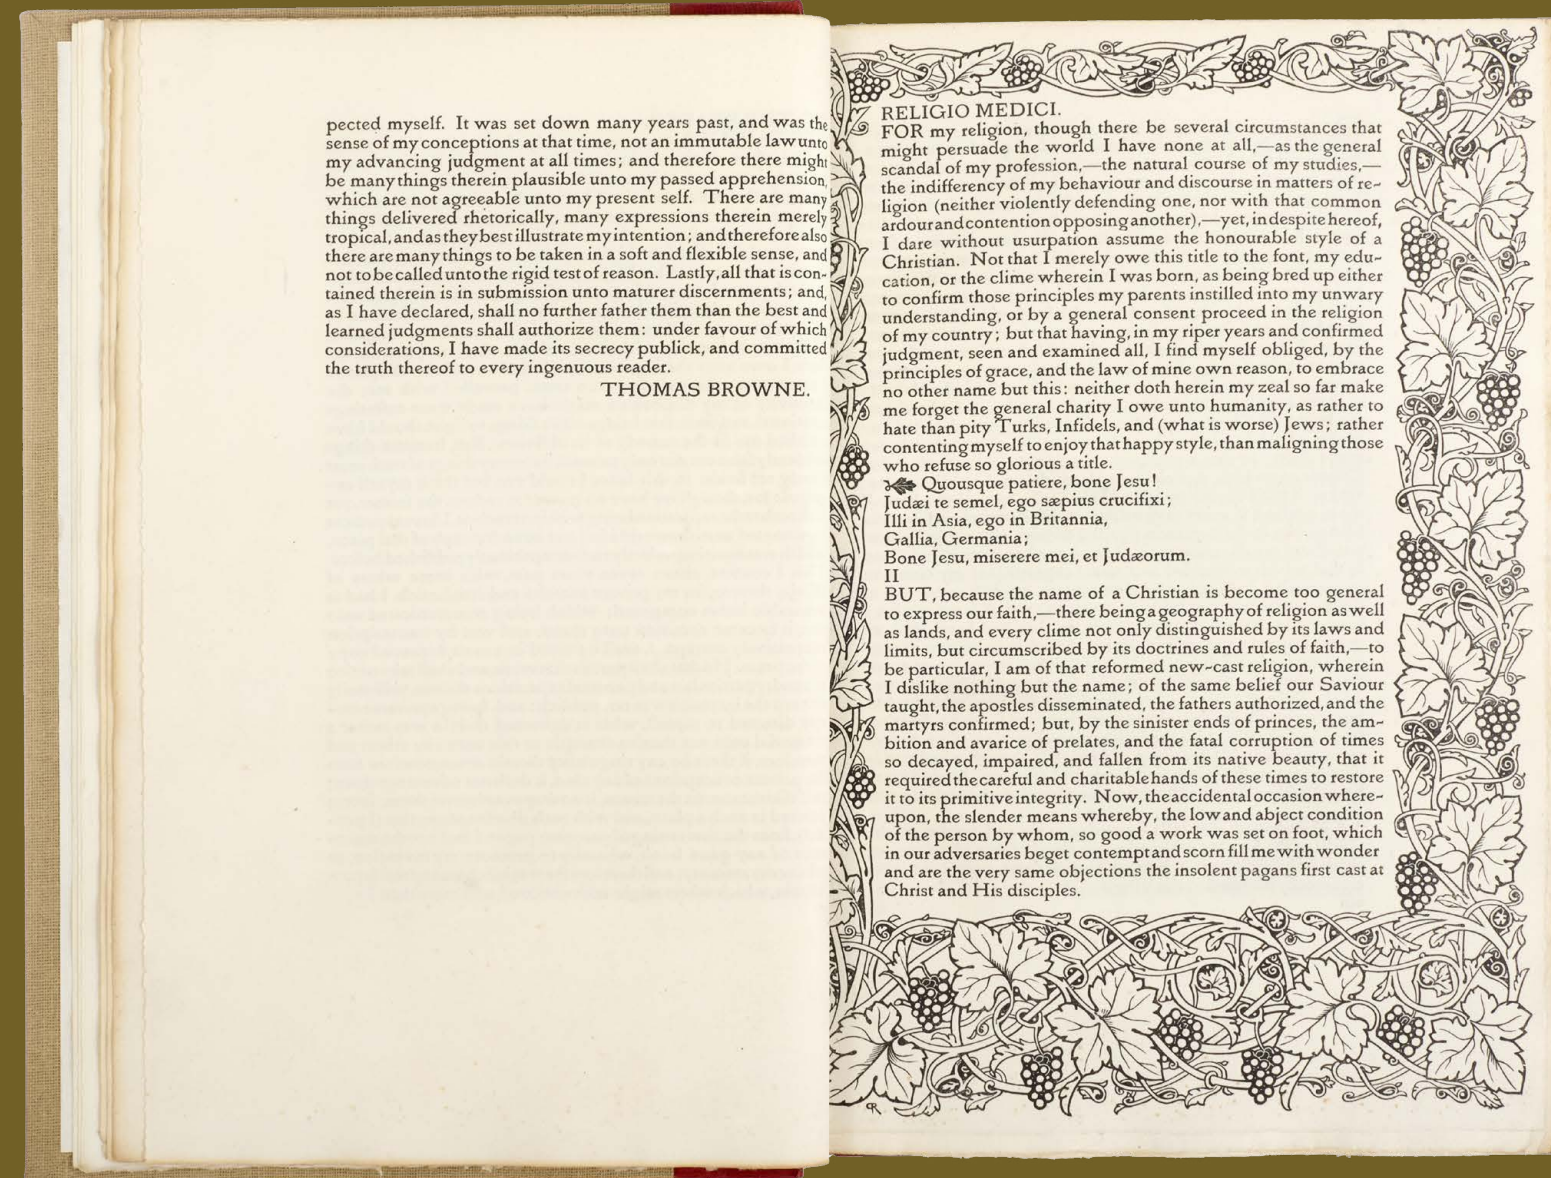 pected myself. It was set down many years past, and was the
sense of my conceptions at that time, not an immutable law unto
my advancing judgment at all times; and therefore there might
be many things therein plausible unto my passed apprehension,
which are not agreeable unto my present self. There are many
things delivered rhetorically, many expressions therein merely
tropical, and as they best illustrate my intention; and therefore also
there are many things to be taken in a soft and flexible sense, and
not to be called unto the rigid test of reason. Lastly, all that is con-
tained therein is in submission unto maturer discernments; and,
as I have declared, shall no further father them than the best and
learned judgments shall authorize them: under favour of which
considerations, I have made its secrecy publick, and committed
the truth thereof to every ingenuous reader.
THOMAS BROWNE.
RELIGIO MEDICI.
FOR my religion, though there be several circumstances that
might persuade the world I have none at all,—as the general
scandal of my profession,—the natural course of my studies,—
the indifferency of my behaviour and discourse in matters of re-
ligion (neither violently defending one, nor with that common
ardour and contention opposing another),—yet, in despite hereof,
I dare without usurpation assume the honourable style of a
Christian. Not that I merely owe this title to the font, my edu-
cation, or the clime wherein I was born, as being bred up either
to confirm those principles my parents instilled into my unwary
understanding, or by a general consent proceed in the religion
of my country; but that having, in my riper years and confirmed
judgment, seen and examined all, I find myself obliged, by the
principles of grace, and the law of mine own reason, to embrace
no other name but this: neither doth herein my zeal so far make
me forget the general charity I owe unto humanity, as rather to
hate than pity Turks, Infidels, and (what is worse) Jews; rather
contenting myself to enjoy that happy style, than maligning those
who refuse so glorious a title.
Quousque patiere, bone Jesu!
Judæi te semel, ego sæpius crucifixi;
Illi in Asia, ego in Britannia,
Gallia, Germania;
Bone Jesu, miserere mei, et Judæorum.
II
BUT, because the name of a Christian is become too general
to express our faith,—there being a geography of religion as well
as lands, and every clime not only distinguished by its laws and
limits, but circumscribed by its doctrines and rules of faith,—to
be particular, I am of that reformed new-cast religion, wherein
I dislike nothing but the name; of the same belief our Saviour
taught, the apostles disseminated, the fathers authorized, and the
martyrs confirmed; but, by the sinister ends of princes, the am-
bition and avarice of prelates, and the fatal corruption of times
so decayed, impaired, and fallen from its native beauty, that it
required the careful and charitable hands of these times to restore
it to its primitive integrity. Now, the accidental occasion where-
upon, the slender means whereby, the low and abject condition
of the person by whom, so good a work was set on foot, which
in our adversaries beget contempt and scorn fill me with wonder
and are the very same objections the insolent pagans first cast at
Christ and His disciples.